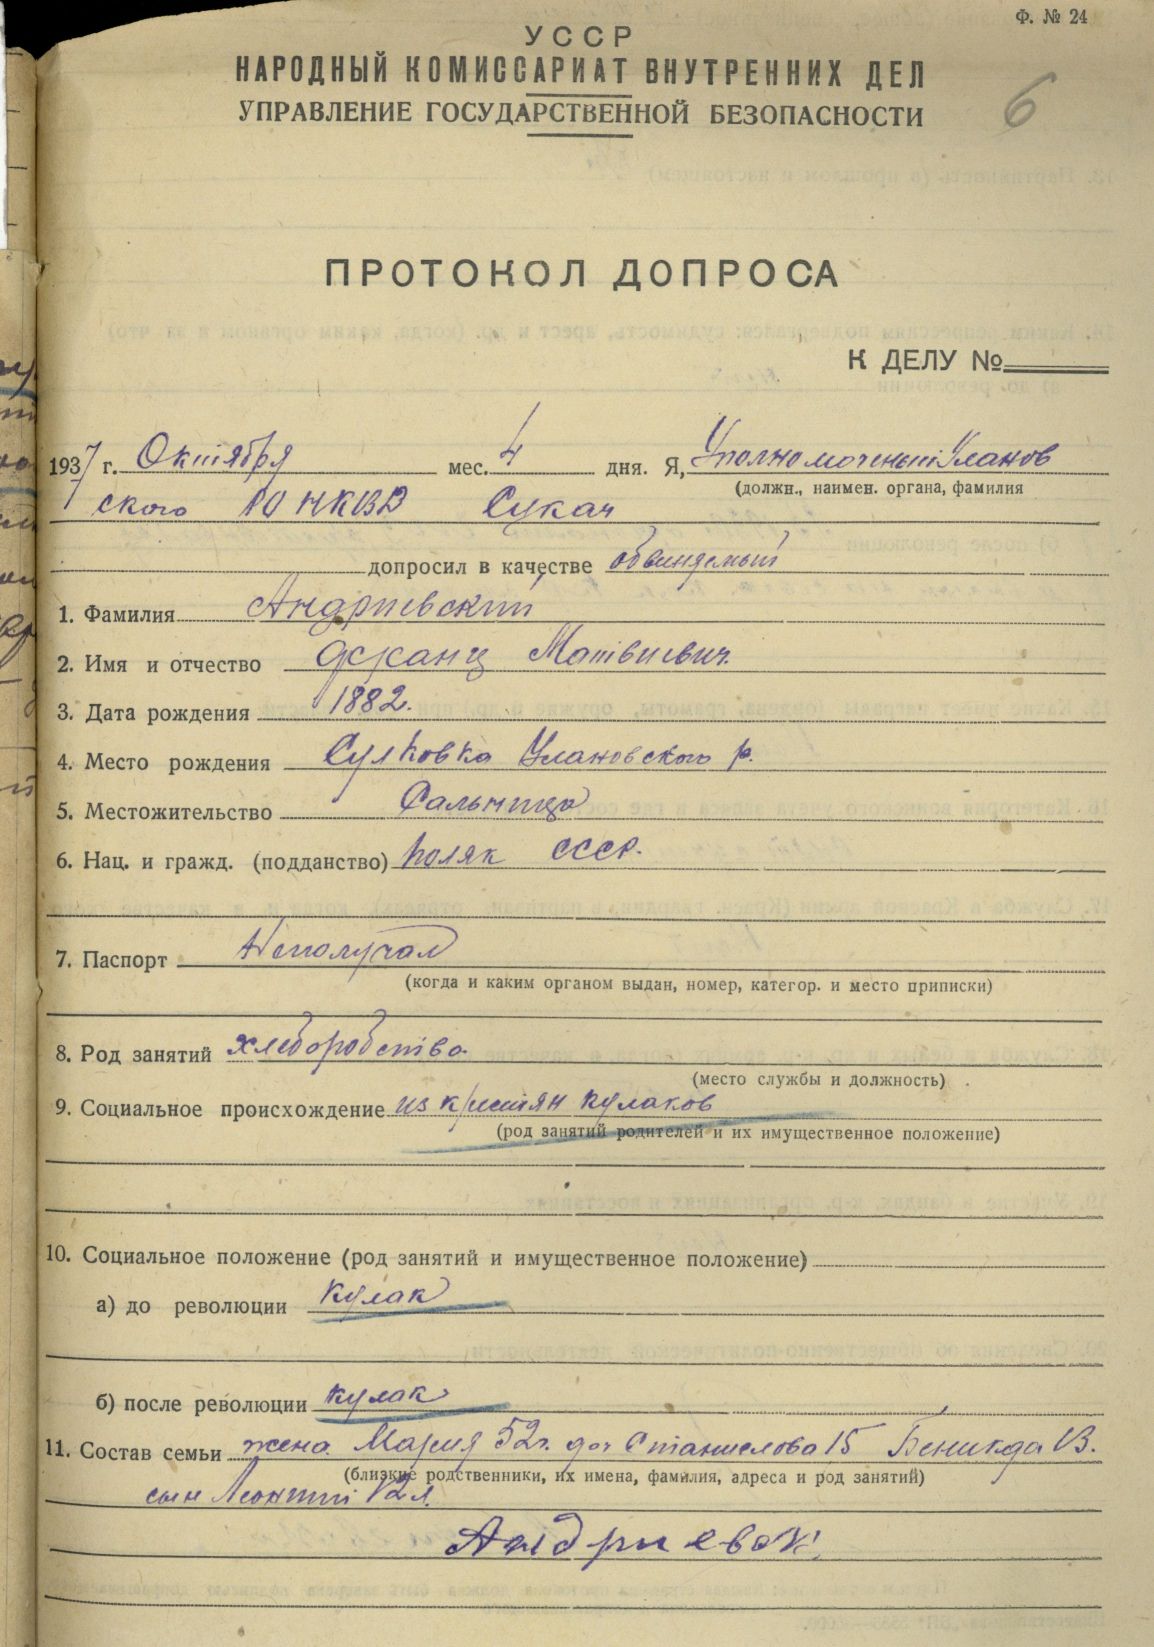 Ф. № 24
УССР
НАРОДНЫЙ КОМИССАРИАТ ВНУТРЕННИХ ДЕЛ
УПРАВЛЕНИЕ ГОСУДАРСТВЕННОЙ БЕЗОПАСНОСТИ
6
ПРОТОКОЛ ДОПРОСА
К ДЕЛУ №
1937 г. Октября мес. 4 дня. Я, Уполномоченый Уланов
(должн., наимен. органа, фамилия
ского РО НКВД Сукач
допросил в качестве обвиняемый
1. Фамилия Андриевский
2. Имя и отчество Франц Матвиевич
3. Дата рождения 1882.
4. Место рождения Сулковка Улановского р.
5. Местожительство Сальница
6. Нац. и гражд. (подданство) поляк СССР.
7. Паспорт Неполучал
(когда и каким органом выдан, номер, категор. и место приписки)
8. Род занятий хлеборобство
(место службы и должность)
9. Социальное происхождение из крестян кулаков
(род занятий родителей и их имущественное положение)
10. Социальное положение (род занятий и имущественное положение)
а) до революции кулак
б) после революции кулак
11. Состав семьи жена Мария 52г. доч Станислова 15 13.
(близкие родственники, их имена, фамилия, адреса и род занятий)
сын Леонтий 12 л.